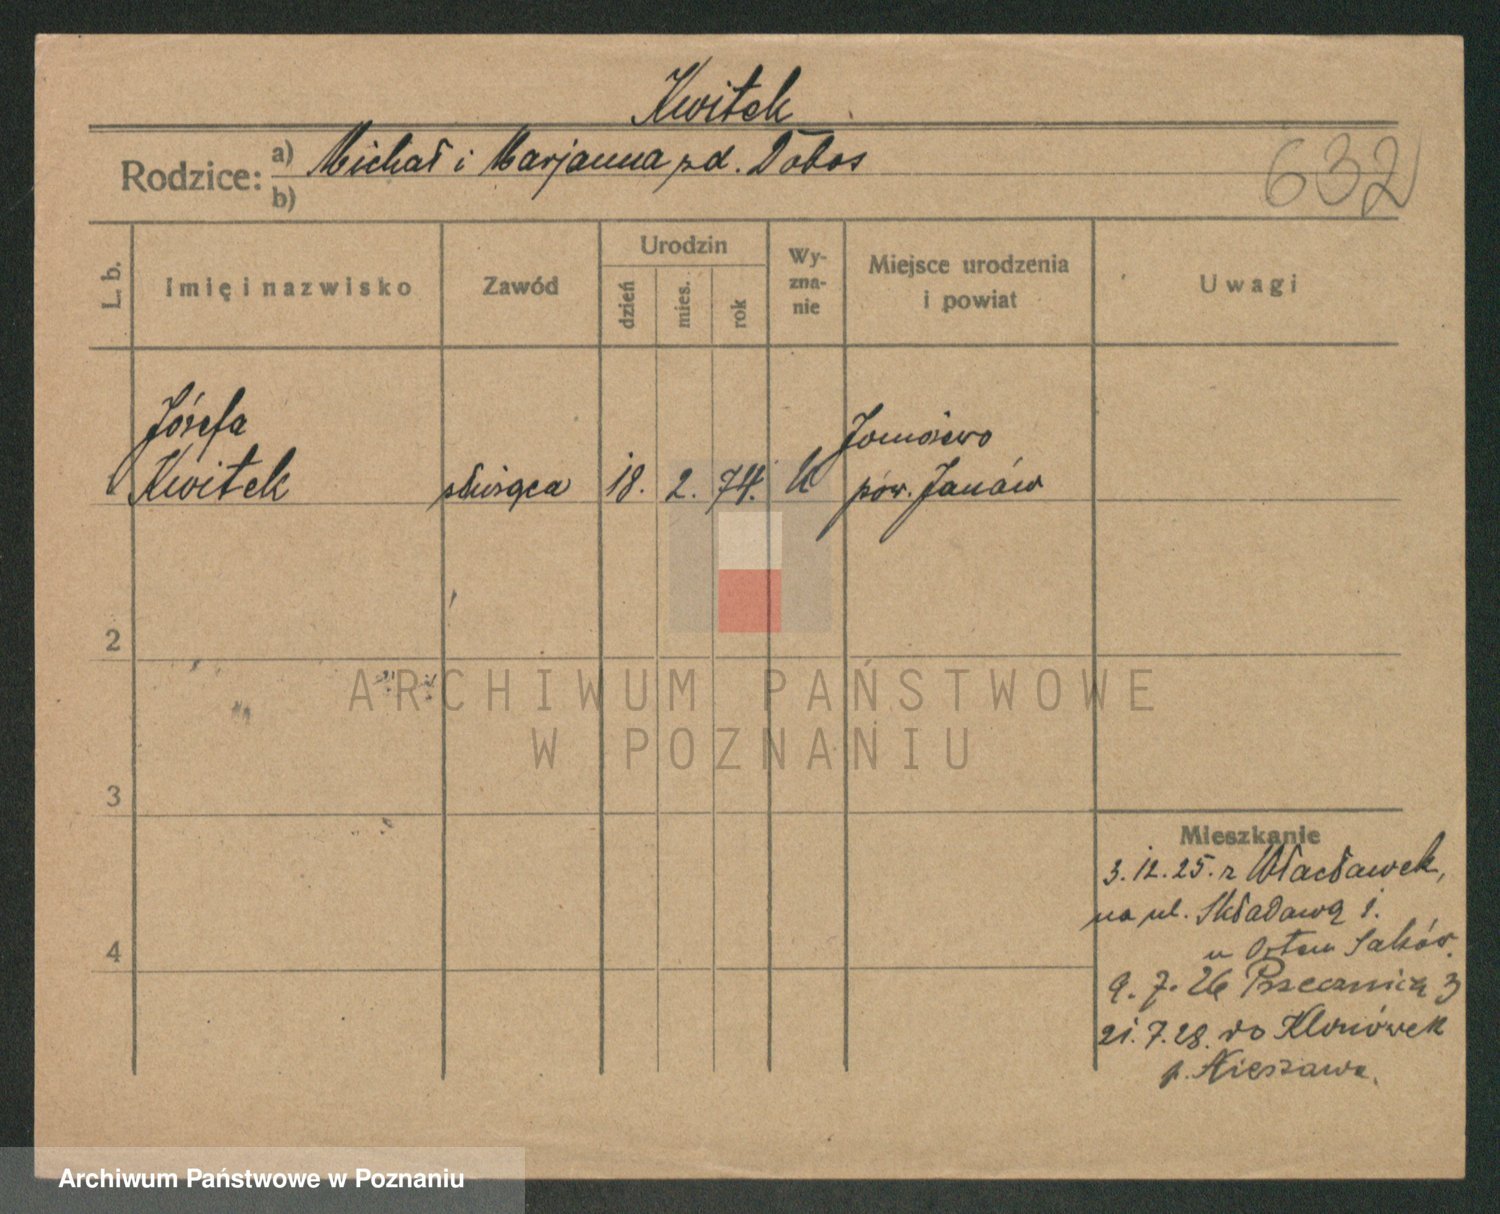 Kwitek
Rodzice: a) Michał i Marjanna zd. Dobos
b)
632
L. b.
Imię i nazwisko
Zawód
Urodzin
dzień
mies.
rok
Wy-
zna-
nie
Miejsce urodzenia
i powiat
Uwagi
Józefa
Kwitek
służąca
18. 2. 74.
pow. Janów
2
3
4
ARCHIWUM PAŃSTWOWE
W POZNANIU
Mieszkanie
3.12.25. z Włacławek,
na ul. Składową 1.
u
9.7.26 Przecznica 3
21.7.28. do Klonówek
p. Nieszawa.
Archiwum Państwowe w Poznaniu